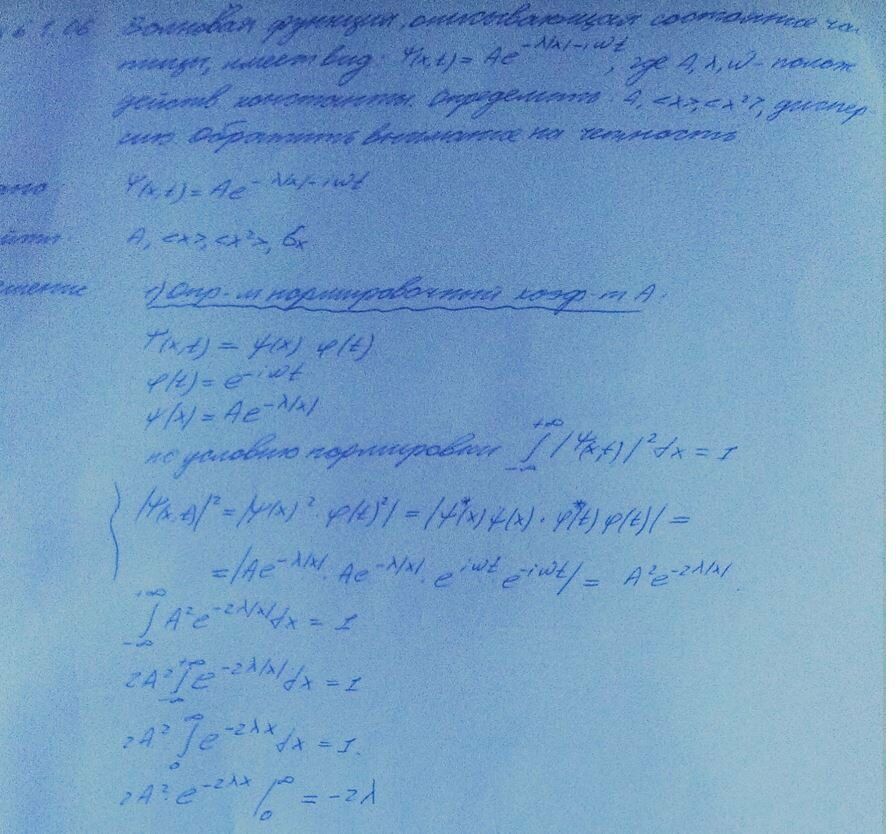 6 1.06 Волновая функция, описывающая состояние ча-
тицы, имеет вид: Ψ(x,t) = Ae^{-λ|x|-iωt}, где A, λ, ω - полож
действ. константы. Определить: A, <x>, <x²>, диспер-
сию. Обратить внимание на четность
ано Ψ(x,t) = Ae^{-λ|x|-iωt}
йти. A, <x>, <x²>, бx
ешение 1) Опр-м нормировочный коэф-т A:
Ψ(x,t) = ψ(x) φ(t)
φ(t) = e^{-iωt}
ψ(x) = Ae^{-λ|x|}
по условию нормировки ∫_{-∞}^{+∞} |Ψ(x,t)|² dx = 1
|Ψ(x,t)|² = |ψ(x)² · φ(t)²| = |ψ*(x) ψ(x) · φ*(t) φ(t)| =
= |Ae^{-λ|x|} · Ae^{-λ|x|} · e^{iωt} e^{-iωt}| = A²e^{-2λ|x|}
∫_{-∞}^{+∞} A²e^{-2λ|x|} dx = 1
2A² ∫_{-∞}^{+∞} e^{-2λ|x|} dx = 1
2A² ∫_{0}^{∞} e^{-2λx} dx = 1.
2A² · e^{-2λx} |_{0}^{∞} = -2λ